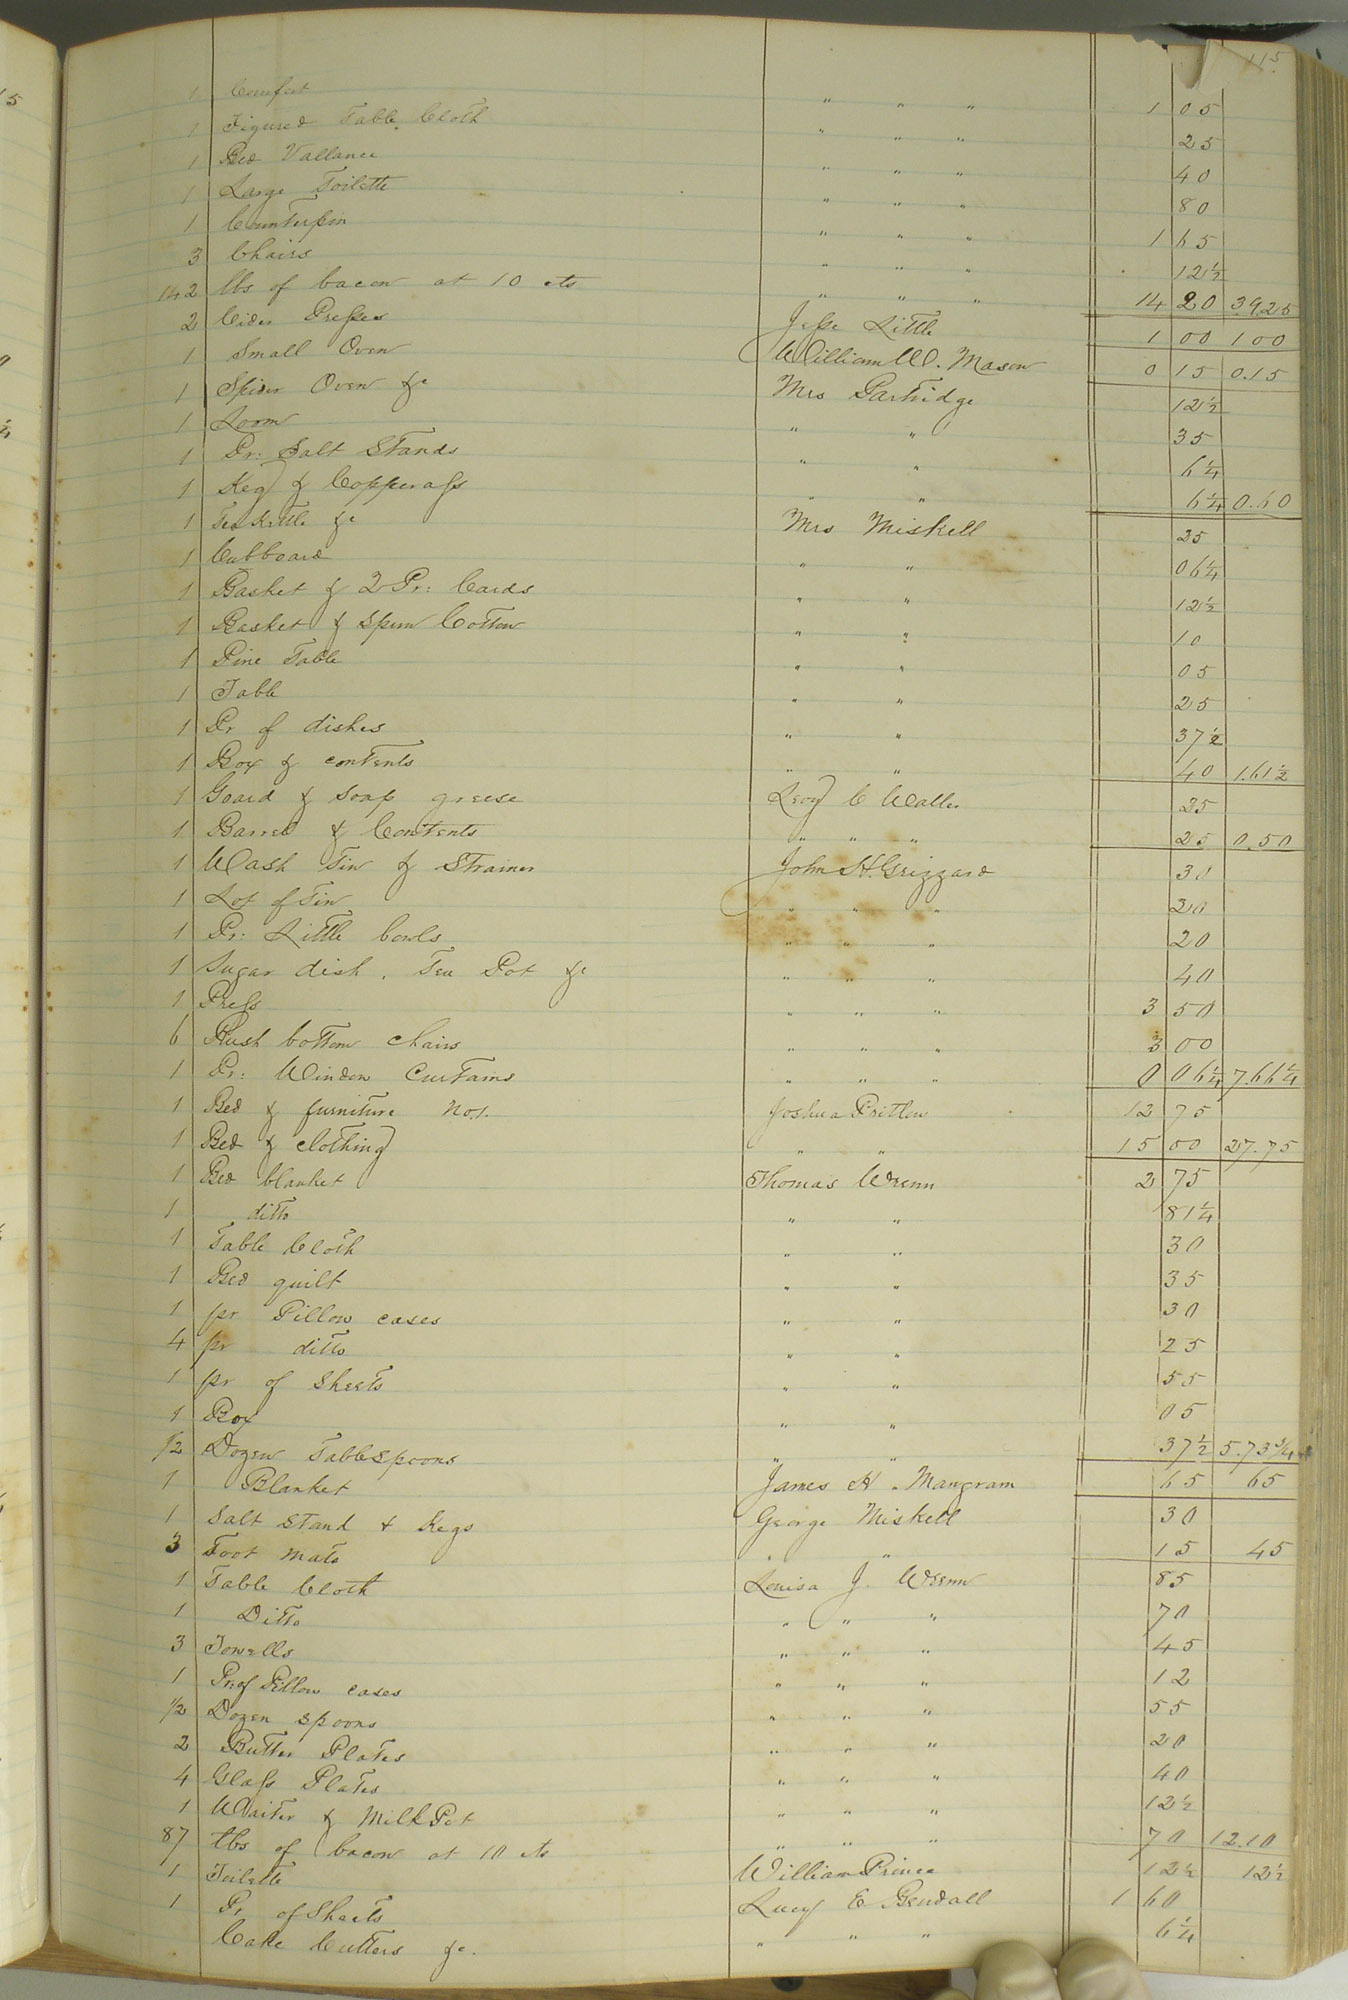 115
1 Comfort " " " 1 05
1 Figured Table Cloth " " " 25
1 Bed Vallance " " " 40
1 Large Toilette " " " 80
1 Counterpin " " " 1 65
3 Chairs " " " 12½
142 lbs of bacon at 10 cts " " " 14 20 39.25
2 Cider Presses Jesse Little 1 00 1 00
1 Small Oven William W. Mason 0 15 0.15
1 Spider Oven &c Mrs Partridge 12½
1 Loom " " 35
1 Pr: Salt Stands " " 6¼
1 Keg & Copperass " " 6¼ 0.60
1 Tea Kettle &c Mrs Miskell 25
1 Cubboard " " 06¼
1 Basket & 2 Pr: Cards " " 12½
1 Basket & Spun Cotton " " 10
1 Pine Table " " 05
1 Table " " 25
1 Pr of dishes " " 37½
1 Box & contents " " 40 1.61½
1 Goard & Soap greese Levy C Waller 25
1 Barrel & Contents " " " 25 0.50
1 Wash Tin & Strainer John H. Grizzard 30
1 Lot of Tin " " " 20
1 Pr: Little bowls " " " 20
1 Sugar dish, Tea Pot &c " " " 40
1 Press " " " 3 50
6 Rush bottom chairs " " " 3 00
1 Pr: Window Curtains " " " 0 06¼ 7.66¼
1 Bed & furniture No1. Joshua Pritlow 12 75
1 Bed & clothing " " 15 00 27.75
1 Bed blanket Thomas Wrenn 2 75
1 ditto " " 81¼
1 Table Cloth " " 30
1 Bed quilt " " 35
1 pr Pillow cases " " 30
4 pr ditto " " 25
1 pr of Sheets " " 55
1 Box " " 05
1/2 Dozen Tablespoons " " 37½ 5.73¾
1 Blanket James H. Mangram 65 65
1 Salt Stand & Kegs George Miskell 30
3 Foot Mats " " 15 45
1 Table Cloth Louisa J. Wrenn 85
1 Ditto " " " 70
3 Towells " " " 45
1 Pr of Pillow cases " " " 12
1/2 Dozen spoons " " " 55
2 Butter Plates " " " 20
4 Glass Plates " " " 40
1 Waiter & Milk Pot " " " 12½
87 lbs of bacon at 10 cts " " " 70 12.10
1 Toilette William Prince 12½ 12½
1 Pr of Sheets Lucy E Bendall 1 60
Cake Cutters &c. " " " 6¼